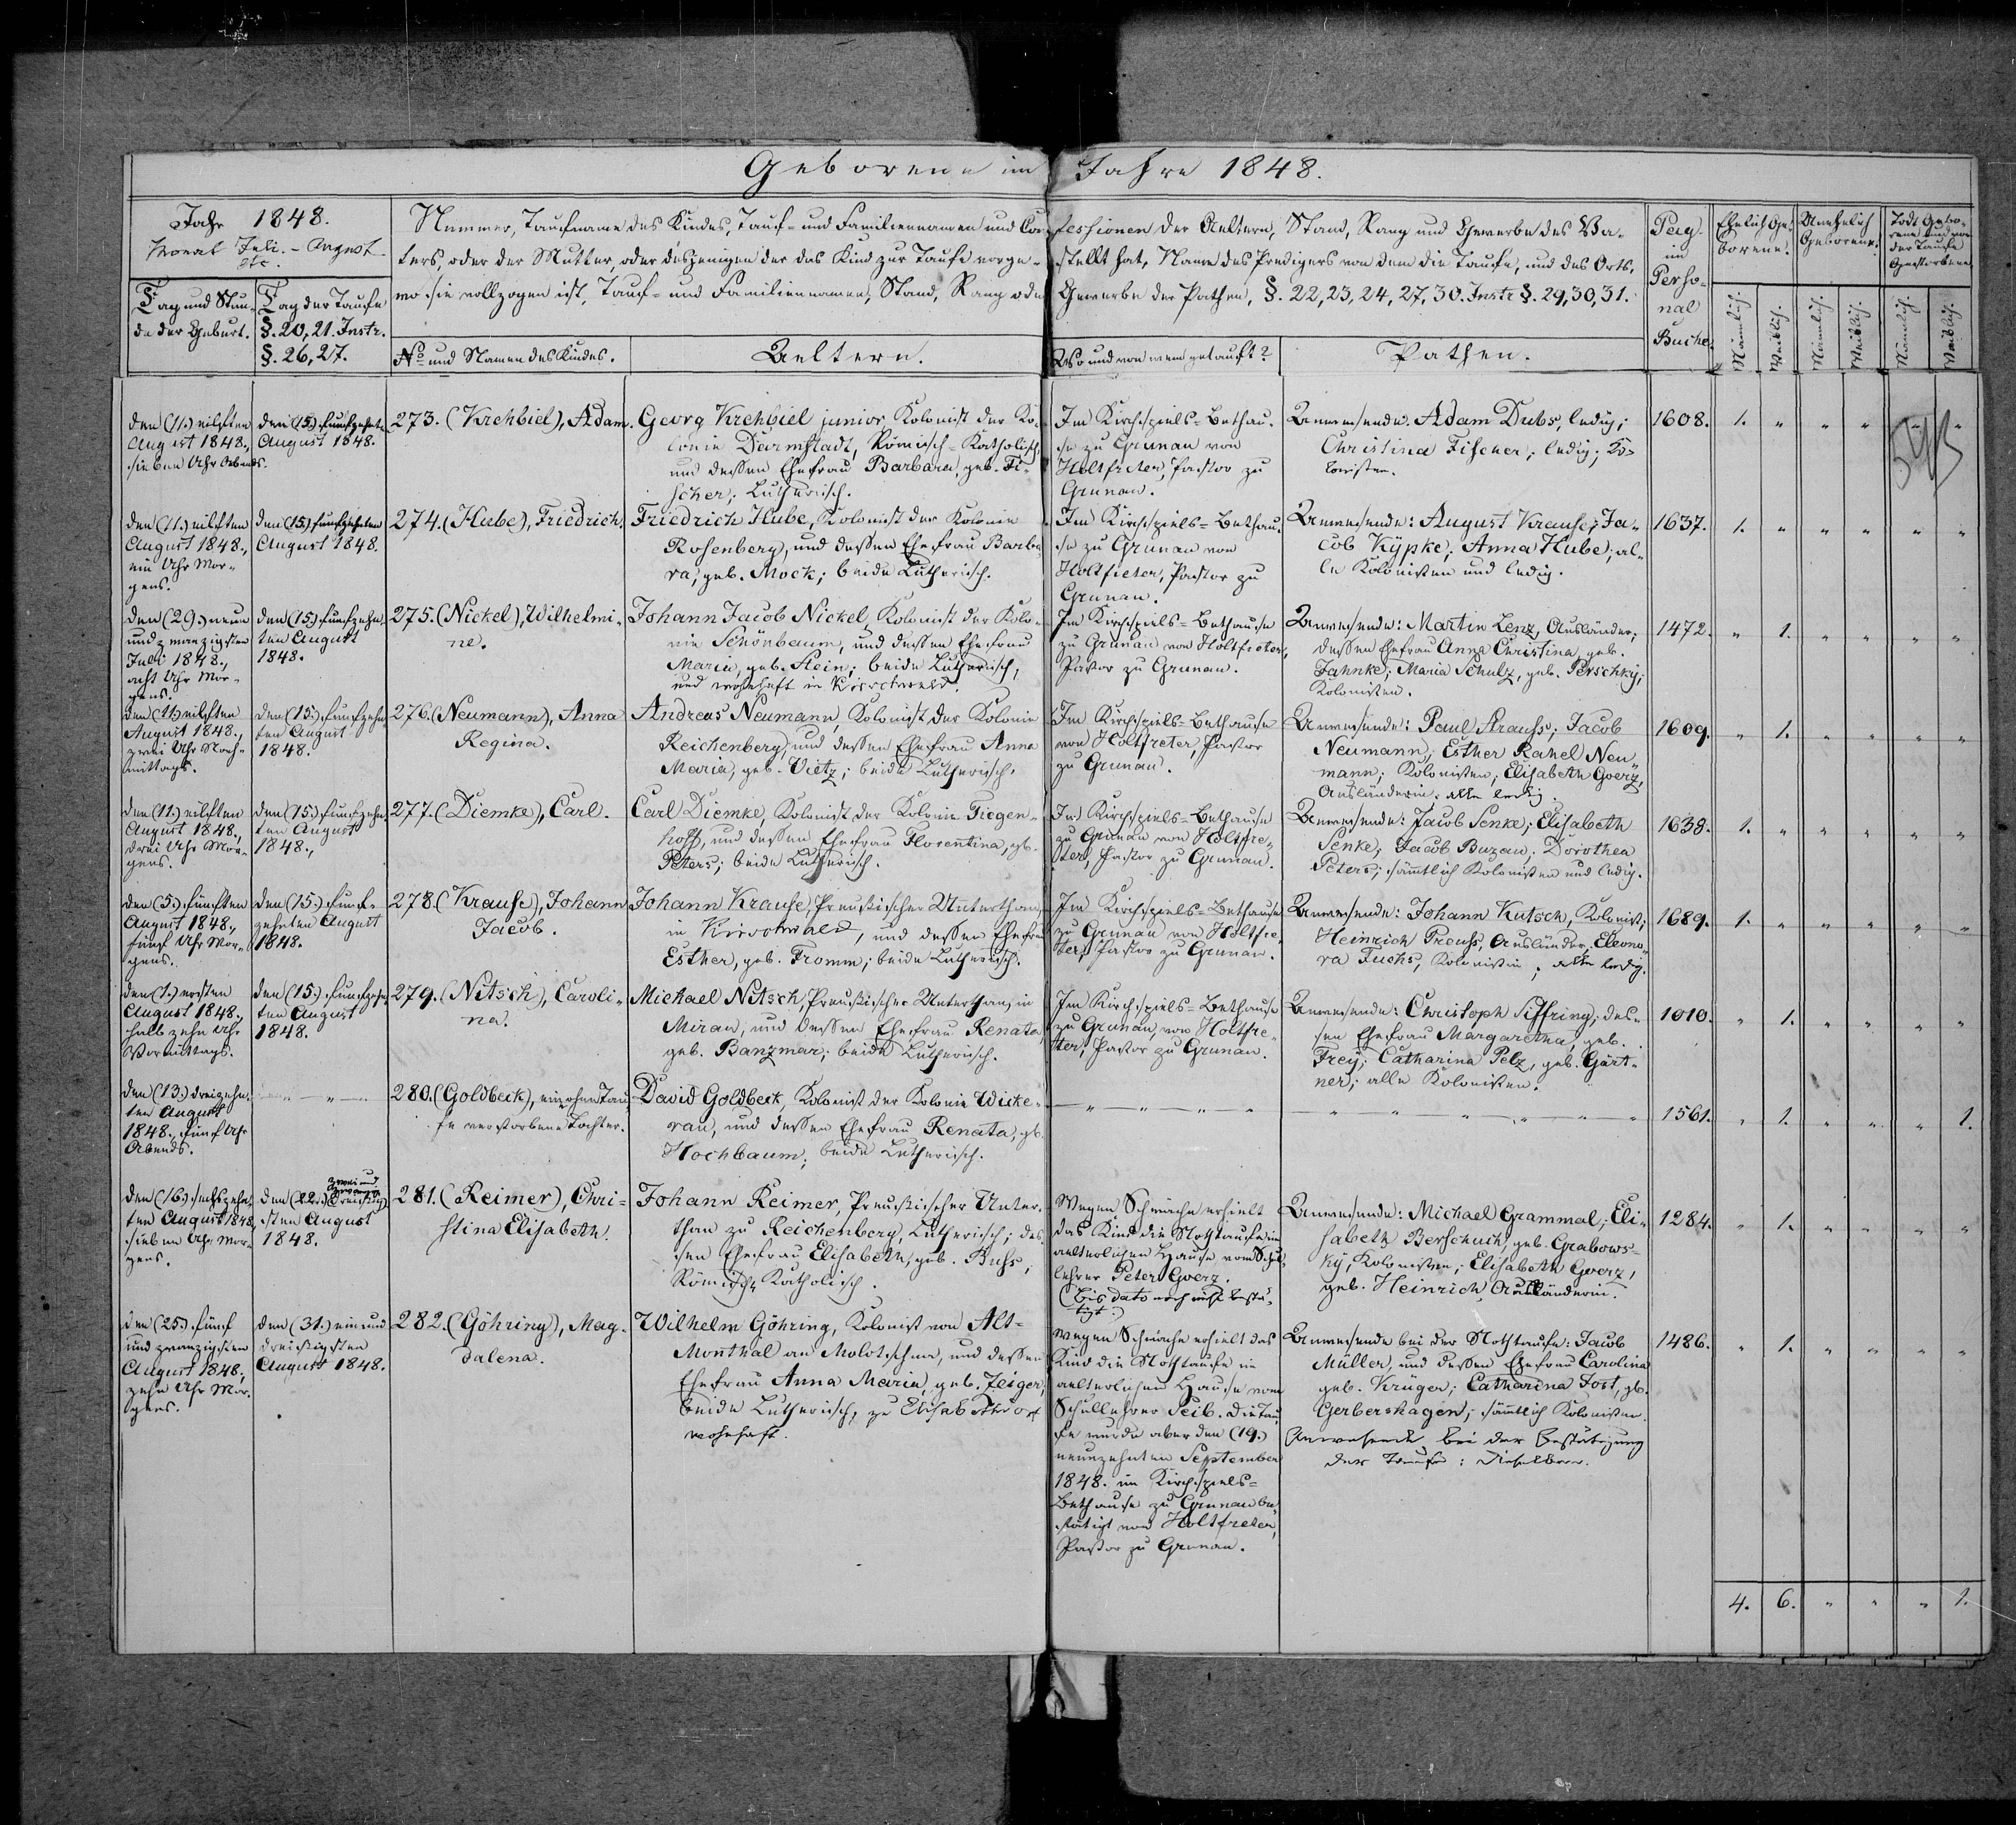 Geborene im Jahre 1848.
Jahr 1848.
Monat Juli. - August
etc.
Tag und Stun-
de der Geburt.
Tag der Taufe
§. 20, 21. Instr.
§. 26, 27.
Nummer, Taufname des Kindes, Tauf- und Familiennamen und Con-
fessionen der Aeltern, Stand, Rang und Gewerbe des Va-
ters, oder der Mutter, oder desjenigen der das Kind zur Taufe vorge-
stellt hat, Name des Predigers von dem die Taufe, und des Orts,
wo sie vollzogen ist, Tauf- und Familiennamen, Stand, Rang oder
Gewerbe der Pathen, §. 22, 23, 24, 27, 30. Instr §. 29, 30, 31.
No und Namen des Kindes.
Aeltern.
Wo und von wem getauft?
Pathen.
Pag.
im
Perso-
nal
Buche.
Ehelich Ge-
borene.
Unehelich
Geborene.
Todt Gebo-
rene und vor
der Taufe
Gestorbene
Männlich.
Weiblich.
Männlich.
Weiblich.
Männlich.
Weiblich.
den (11.) eilften
August 1848.,
sieben Uhr Abends.
den (15.) funfzehnten
August 1848.
273. (Krehbiel), Adam.
Georg Krehbiel junior Kolonist der Ko-
lonie Darmstadt, Römisch-Katholisch,
und dessen Ehefrau Barbara, geb. Fi-
scher; Lutherisch.
Im Kirchspiels-Bethau-
se zu Grunau von
Holtfreter, Pastor zu
Grunau.
Anwesende: Adam Dubs, ledig;
Christina Fischer; ledig; Ko-
lonisten.
1608. 1. " " " " "
den (11.) eilften
August 1848.,
ein Uhr Mor-
gens.
den (15.) funfzehnten
August 1848.
274. (Hube), Friedrich.
Friedrich Hube, Kolonist der Kolonie
Rosenberg, und dessen Ehefrau Barba-
ra, geb. Mock; beide Lutherisch.
Im Kirchspiels-Bethau-
se zu Grunau von
Holtfreter, Pastor zu
Grunau.
Anwesende: August Krause; Ja-
cob Kÿpke; Anna Hube; al-
le Kolonisten und ledig.
1637. 1. " " " " "
den (29.) neun
und zwanzigsten
Juli 1848.,
acht Uhr Mor-
gens.
den (15.) funfzehn-
ten August
1848.
275. (Nickel), Wilhelmi-
ne.
Johann Jacob Nickel, Kolonist der Kolo-
nie Schönbaum, und dessen Ehefrau
Maria, geb. Stein; beide Lutherisch,
und wohnhaft in Kirschwald.
Im Kirchspiels-Bethause
zu Grunau von Holtfreter,
Pastor zu Grunau.
Anwesende: Martin Lenz, Ausländer;
dessen Ehefrau Anna Christina, geb.
Jahnke; Maria Schulz, geb. Perschkÿ;
Kolonisten.
1472. " 1. " " " "
den (11.) eilften
August 1848.,
zwei Uhr Nach-
mittags.
den (15.) funfzehn-
ten August
1848.
276. (Neumann), Anna
Regina.
Andreas Neumann, Kolonist der Kolonie
Reichenberg, und dessen Ehefrau Anna
Maria, geb. Vietz; beide Lutherisch.
Im Kirchspiels-Bethause
von Holtfreter, Pastor
zu Grunau.
Anwesende: Paul Strauss; Jacob
Neumann; Esther Rahel Neu
mann; Kolonisten; Elisabeth Goerz,
Ausländerin. alle ledig.
1609. " 1. " " " "
den (11.) eilften
August 1848.,
drei Uhr Mor-
gens.
den (15.) funfzehn-
ten August
1848.,
277. (Diemke), Carl.
Carl Diemke, Kolonist der Kolonie Tiegen-
hoff, und dessen Ehefrau Florentina, gb.
Peters; beide Lutherisch.
Im Kirchspiels-Bethause
zu Grunau von Holtfre-
ter, Pastor zu Grunau.
Anwesende: Jacob Senke; Elisabeth
Senke; Jacob Buzau; Dorothea
Peters; sämmtlich Kolonisten und ledig.
1638. 1. " " " " "
den (5.) fünften
August 1848.,
fünf Uhr Mor-
gens.
den (15.) funf-
zehnten August
1848.
278. (Krause), Johann
Jacob.
Johann Krause, Preußischer Unterthan,
in Kirschwald, und dessen Ehefrau
Esther, geb. Fromm; beide Lutherisch.
Im Kirchspiels-Bethause
zu Grunau von Holtfre-
ter, Pastor zu Grunau.
Anwesende: Johann Kutsch, Kolonist;
Heinrich Preuss, Ausländer; Eleono-
ra Fuchs, Kolonistin; alle ledig.
1689. 1. " " " " "
den (1.) ersten
August 1848.,
halb zehn Uhr
Vormittags.
den (15.) funfzehn-
ten August
1848.
279. (Nitsch), Caroli-
na.
Michael Nitsch, Preußischer Unterthan, in
Mirau, und dessen Ehefrau Renata,
geb. Banzmar; beide Lutherisch.
Im Kirchspiels-Bethause
zu Grunau, von Holtfre-
ter, Pastor zu Grunau.
Anwesende: Christoph Siffring; des-
sen Ehefrau Margaretha, geb.
Freÿ; Catharina Pelz, geb. Gärt-
ner; alle Kolonisten.
1010. " 1. " " " "
den (13.) dreizehn-
ten August
1848., fünf Uhr
Abends.
280. (Goldbeck), eine ohne Tau-
fe verstorbene Tochter.
David Goldbeck, Kolonist der Kolonie Wicke-
rau, und dessen Ehefrau Renata, gb.
Hochbaum; beide Lutherisch.
1561. " 1. " " " 1.
den (16.) sechszehn-
ten August 1848.,
sieben Uhr Mor-
gens.
zwei und
den (22.) zwanzig
sten August
1848.
281. (Reimer), Chri-
stina Elisabeth.
Johann Reimer, Preußischer Unter-
than zu Reichenberg, Lutherisch; des-
sen Ehefrau Elisabeth, geb. Buhs,
Römisch-Katholisch.
Wegen Schwäche erhielt
das Kind die Nothtaufe im
aelterlichen Hause vom Schul-
lehrer Peter Goerz.
(bis dato noch nicht bestä-
tigt.)
Anwesende: Michael Grammal; Eli-
sabeth Berschuch, geb. Grabows-
kÿ, Kolonisten; Elisabeth Goerz,
geb. Heinrich, Ausländerin.
1284. " 1. " " " "
den (25.) fünf
und zwanzigsten
August 1848.,
zehn Uhr Mor-
gens.
den (31.) ein und
dreissigsten
August 1848.
282. (Göhring), Mag-
dalena.
Wilhelm Göhring, Kolonist von Alt-
Monthal an Molotschna, und dessen
Ehefrau Anna Maria, geb. Zeiger,
beide Lutherisch, zu Elisabethdorf
wohnhaft.
Wegen Schwäche erhielt das
Kind die Nothtaufe im
aelterlichen Hause vom
Schullehrer Seib. Die Tau-
fe wurde aber den (19.)
neunzehnten September
1848. im Kirchspiels-
Bethause zu Grunau be-
stätigt von Holtfreter,
Pastor zu Grunau.
Anwesende bei der Nothtaufe: Jacob
Müller, und dessen Ehefrau Carolina
geb. Krüger; Catharina Jost, gb.
Gerbershagen; sämtlich Kolonisten.
Anwesende bei der Bestätigung
der Taufe: Dieselben.
1486. " 1. " " " "
4. 6. " " " 1.